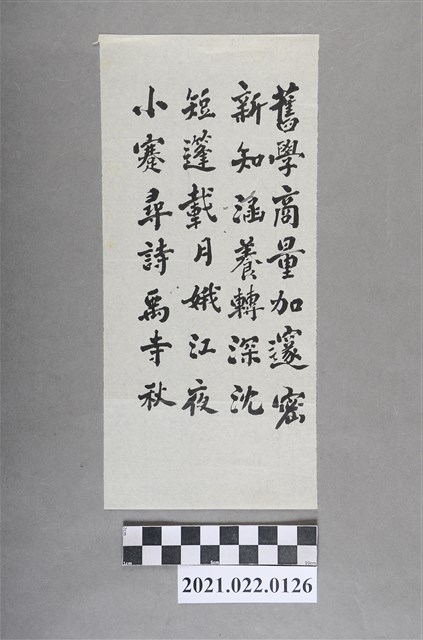 舊學商量加邃密
新知涵養轉深沈
短蓬載月娥江夜
小蹇尋詩禹寺秋
1cm 5cm 10cm
2021.022.0126